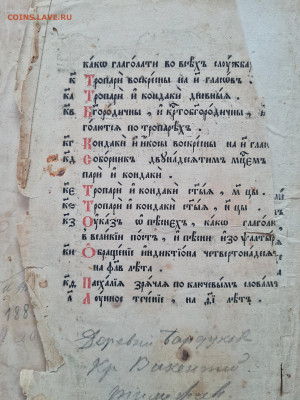 COINS.LAVE.RU
како глаголати во всѣхъ слꙋжба
к҃ Тропари воскресны на и҃ гласовъ.
ка Тропари и кондаки дневныя.
кв Богородичны, и крⷭ҇тобгородичны, г
голютсѧ по тропарѣхъ.
кг Кондаки и икосы воскресны на и҃ глас
кд Соборникъ двꙋнадесѧтим мцⷭ҇ем
пари и кондаки.
ке Тропари и кондаки
кѕ Тропари и кондаки
кз Оуказъ ѡ пѣснехъ, како глагол
в великїи постъ, и пѣнии изо ѱалтыр
ки Обращение индиктиона четвертонадес
на фл҃в лѣта.
кд Пасхалїѧ зрѧчаѧ по ключевымъ словамъ
л҃ Лꙋнное течение, на д҃і лѣтъ.
188
Деревни
Кр Викентий